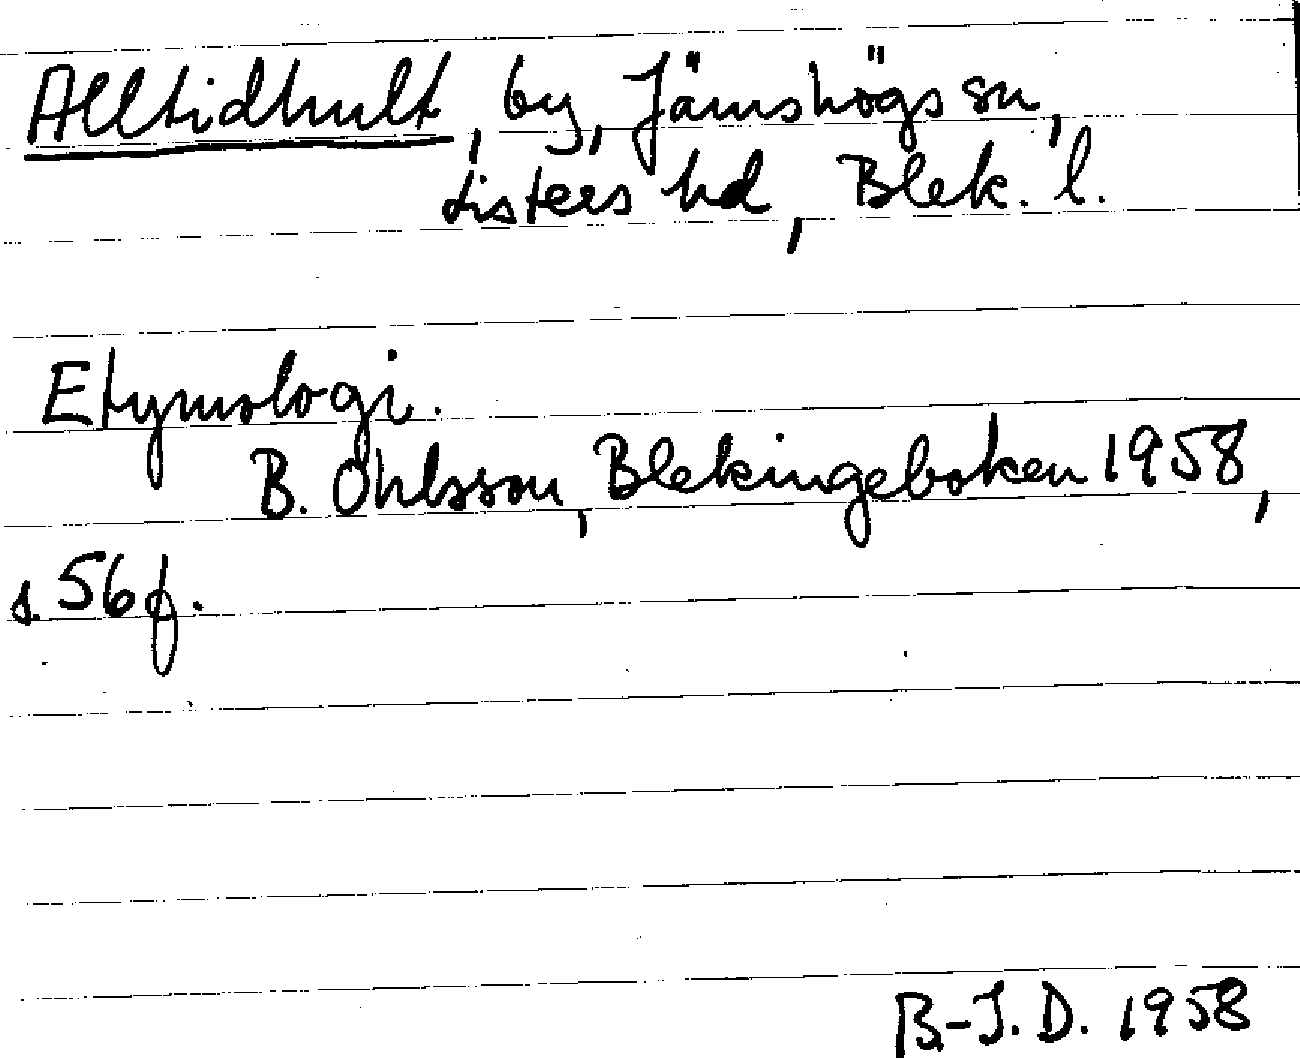 Alltidhult, by, Jämshögs sn,
Listers hd, Blek. l.
Etymologi.
B. Ohlsson, Blekingeboken 1958,
s. 56 f.
B-J. D. 1958